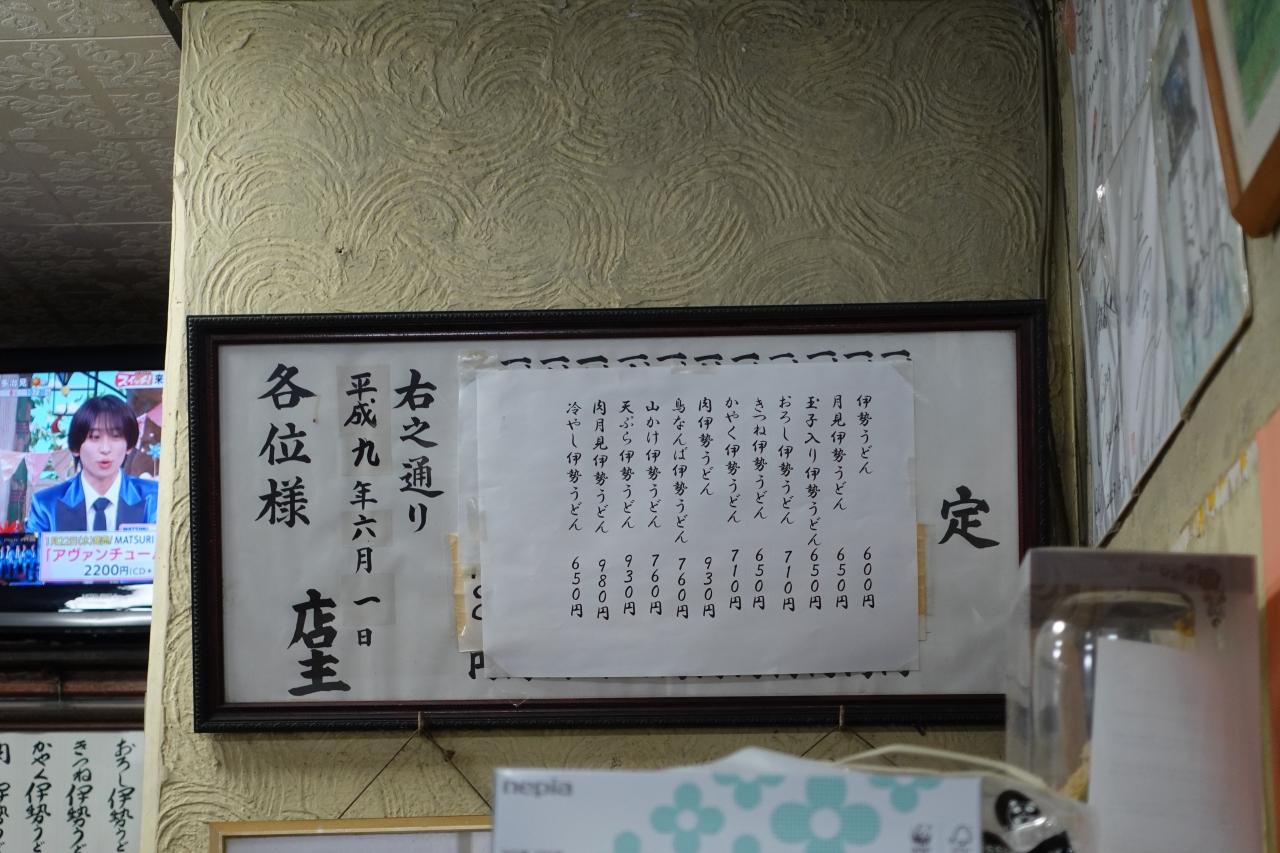 定
伊勢うどん 600円
月見伊勢うどん 650円
玉子入り伊勢うどん 650円
おろし伊勢うどん 710円
きつね伊勢うどん 650円
かやく伊勢うどん 710円
肉伊勢うどん 930円
鳥なんば伊勢うどん 760円
山かけ伊勢うどん 760円
天ぷら伊勢うどん 930円
肉月見伊勢うどん 980円
冷やし伊勢うどん 650円
右之通り
平成九年六月一日
店主
各位様
MATSURI
「アヴァンチュー
2200円(CD+
おろし伊勢う
きつね伊勢うど
かやく伊勢うど
肉 伊勢う
nepia